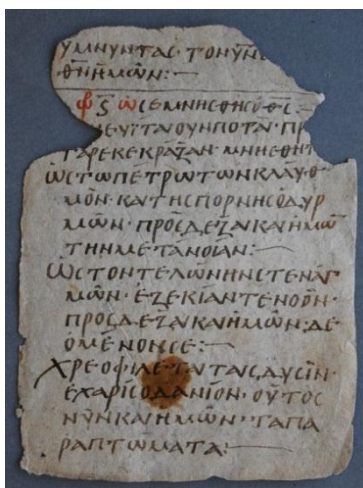 ΥΜΝΥΝΤΑΣ· ΤΟΝ ΥΝ
ΘΝ ΗΜΩΝ:—
Φ Ϛ ΩΣ ΕΜΝΗΣΘΗΣ Ο ΘΣ
ΠΡ
ΓΑΡ ΕΚΕΚΡΑΞΑΝ· ΜΝΗΣΘΗΤ
ΩΣ ΤΩ ΠΕΤΡΩ ΤΩΝ ΚΛΑΥΘ
ΜΟΝ· ΚΑΙ ΤΗΣ ΠΟΡΝΗΣ ΟΔΥΡ
ΜΩΝ· ΠΡΟΣΔΕΞΑΙ ΚΑΙ ΗΜΩ
ΤΗΝ ΜΕΤΑΝΟΙΑΝ:—
ΩΣ ΤΟΝ ΤΕΛΩΝΗΝ ΣΤΕΝΑΓ
ΜΩΝ· ΕΖΕΚΙΑΝ ΤΕ ΝΟΟΝ·
ΠΡΟΣΔΕΞΑ ΚΑΙ ΗΜΩΝ· ΔΕ
ΟΜΕΝΟΝ ΣΕ:—
ΧΡΕΟΦΙΛΕΤΑΤΑΣ ΔΥΣΙΝ·
ΕΧΑΡΙΣΟ ΔΑΝΙΟΝ· ΟΥΤΟΣ
ΝΥΝ ΚΑΙ ΗΜΩΝ· ΤΑ ΠΑ
ΡΑΠΤΩΜΑΤΑ:—